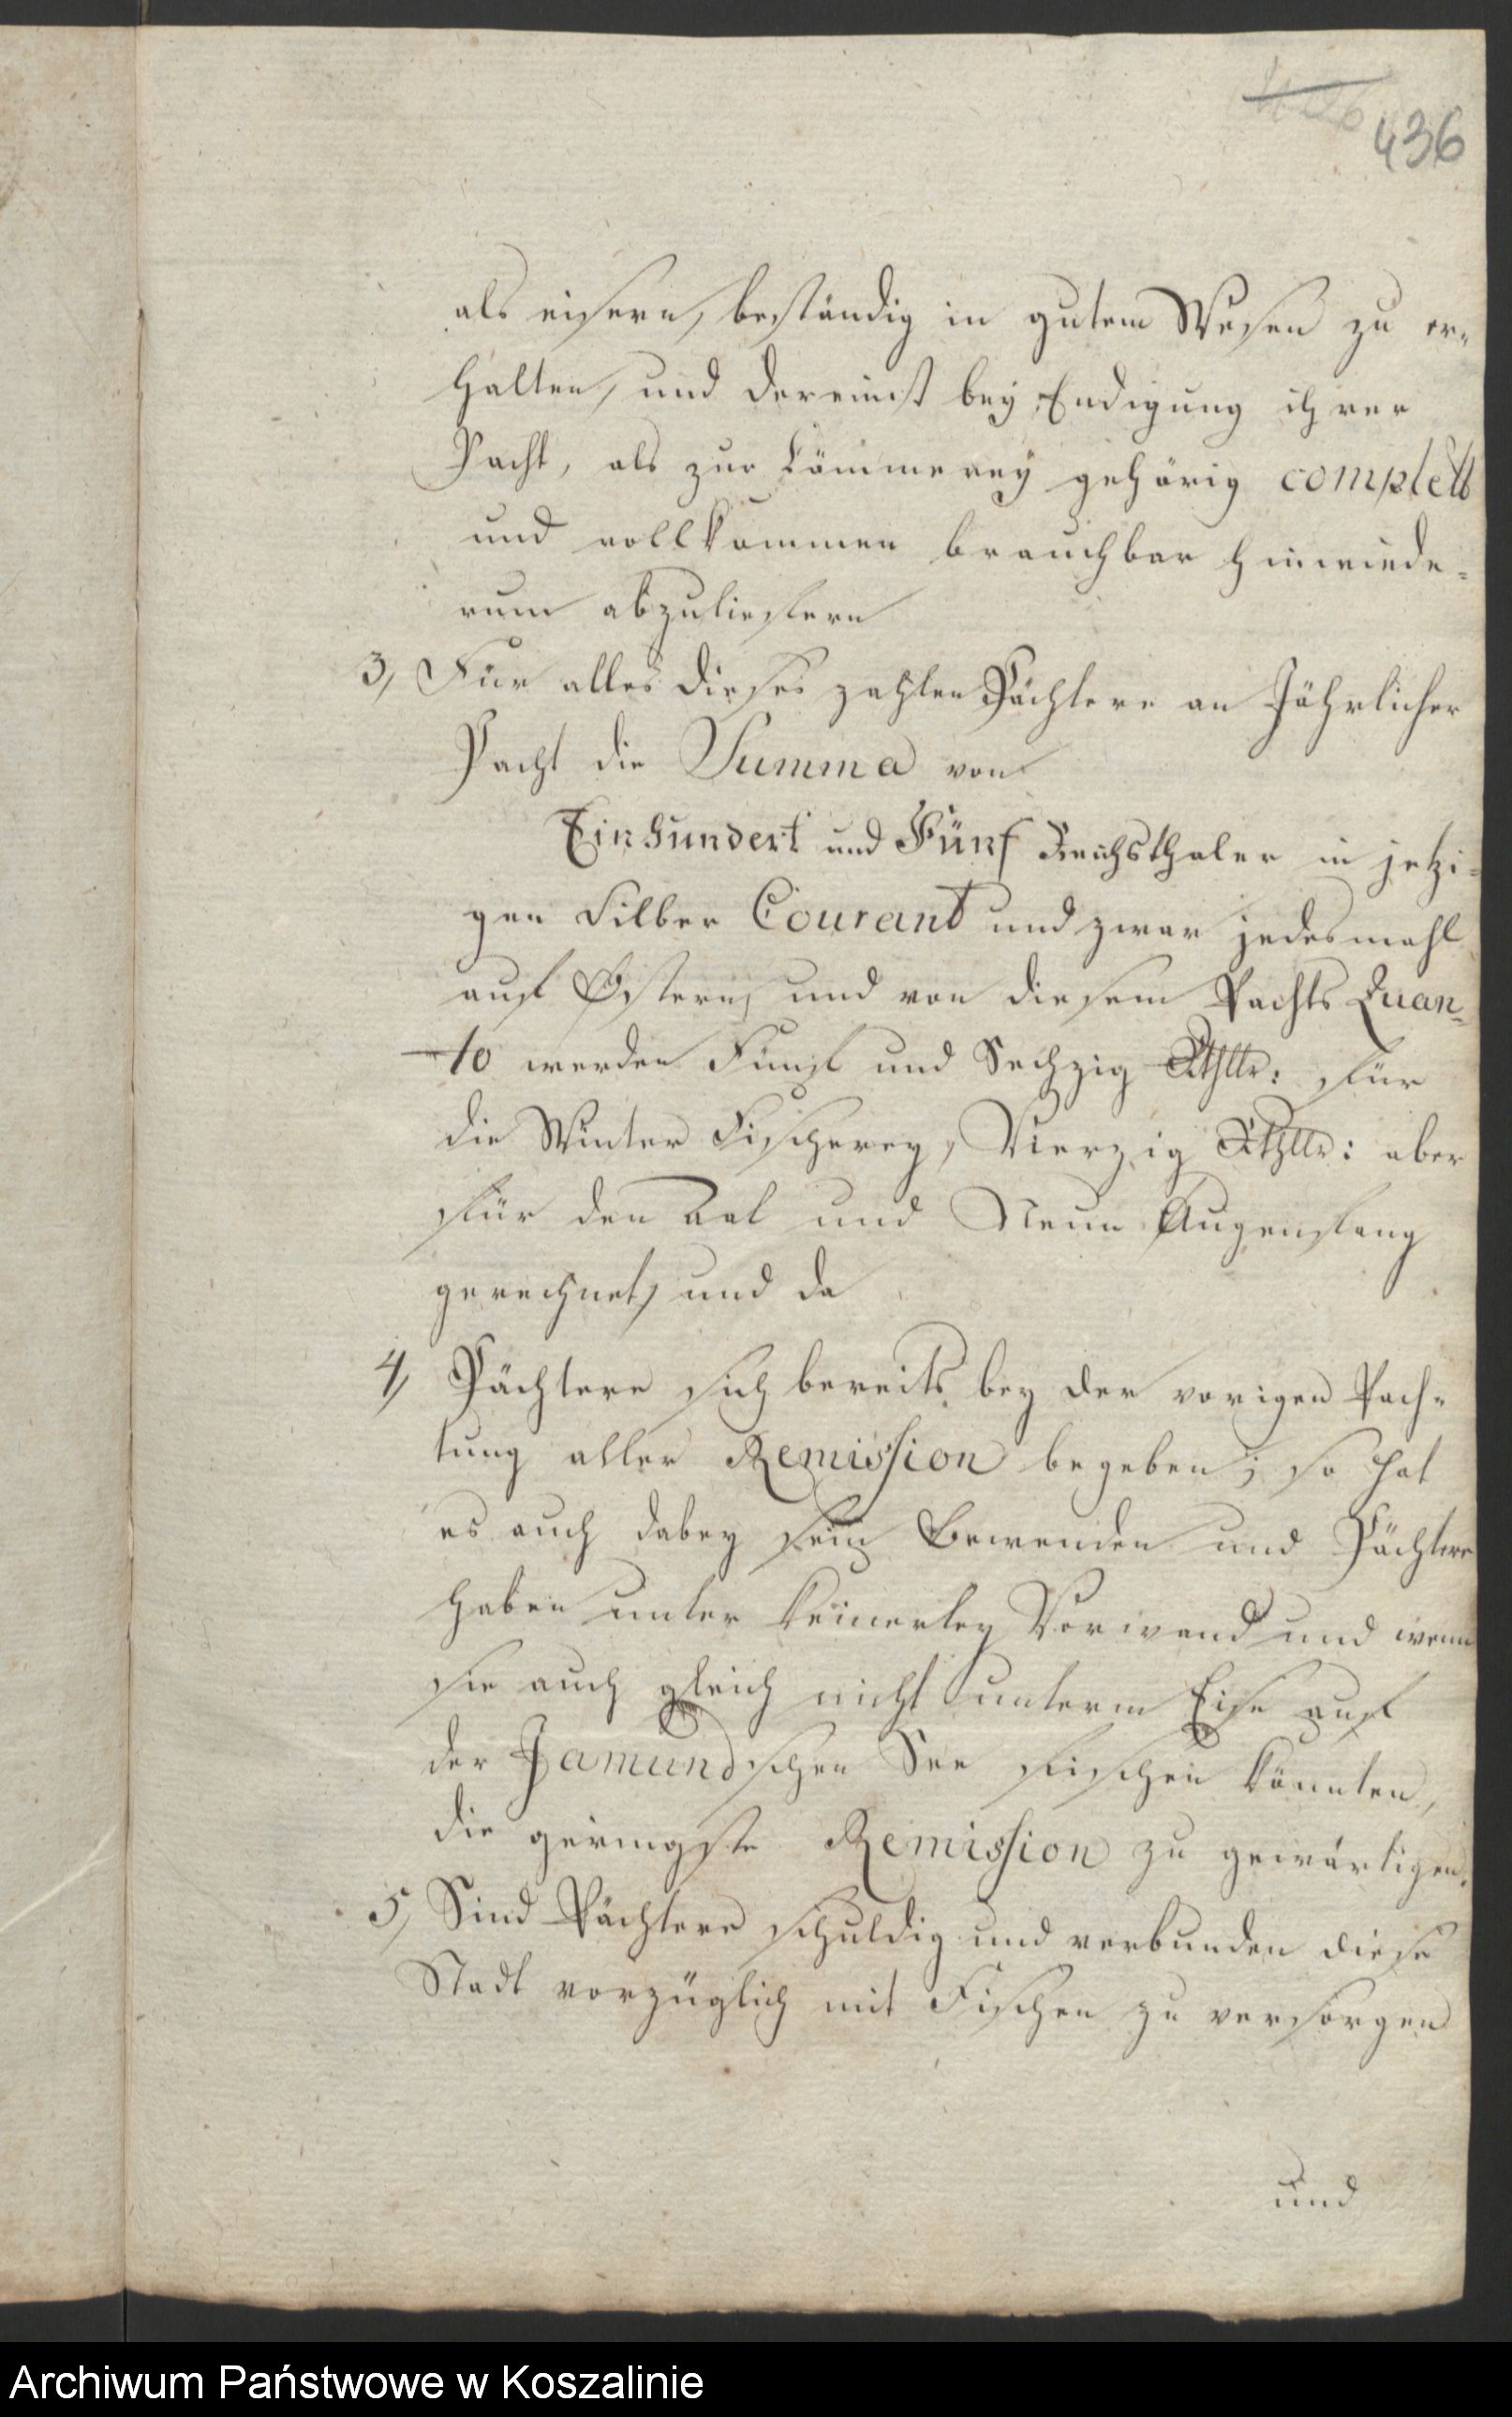 436
als eisern, beständig in gutem Wesen zu er-
halten, und dereinst bey Endigung ihrer
Pacht, als zur Cämmerey gehörig complett
und vollkommen brauchbar hinwiede-
rum abzuliefern
3, Für alles dieses zahlen Pächtere an Jährlicher
Pacht die Summa von
Einhundert und Fünf Reichsthaler in jetzi-
gen Silber Courant und zwar jedesmahl
auf Ostern, und von diesem Pachts Quan-
to werden Fünf und Sechzig Rthllr: für
die Winter Fischerey, Vierzig Rthllr: aber
für den Aal und Neun Augenfang
gerechnet, und da
4, Pächtere sich bereits bey der vorigen Pach-
tung aller Remission begeben; so hat
es auch dabey sein Bewenden und Pächtere
haben unter keinerley Vorwand und wenn
sie auch gleich nicht unterm Eise auf
der Jamundschen See fischen könnten,
die geringste Remission zu gewärtigen.
5, Sind Pächtere schuldig und verbunden diese
Stadt vorzüglich mit Fischen zu versorgen
und
Archiwum Państwowe w Koszalinie